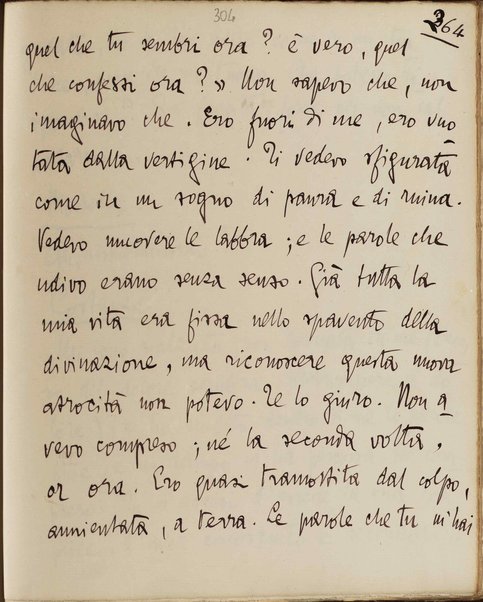 304
264
quel che tu sembri ora? è vero, quel
che confessi ora?» Non sapevo che, non
imaginavo che. Ero fuori di me, ero vuo
tata dalla vertigine. Ti vedevo sfigurata
come in un sogno di paura e di ruina.
Vedevo muovere le labbra; e le parole che
udivo erano senza senso. Già tutta la
mia vita era fissa nello spavento della
divinazione, ma riconoscere questa nuova
atrocità non potevo. Te lo giuro. Non a
vevo compreso; né la seconda volta,
or ora. Ero quasi tramortita dal colpo,
annientata, a terra. Le parole che tu m'hai